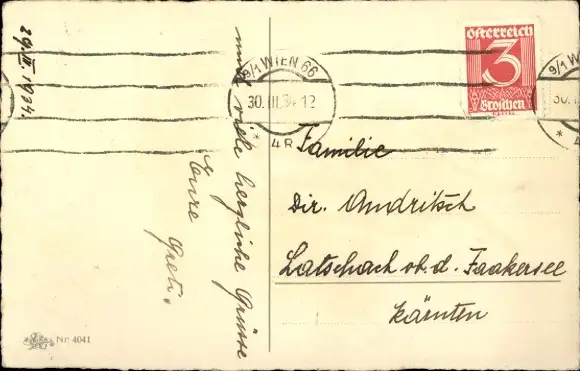 29.III.1934.
und viele herzliche Grüsse
Eure
Greti.
Nr. 4041
9/1 WIEN 66
30.III.34 12
* 4R
9/1
30.
* 4
Österreich
3
Groschen
Familie
Dir. Andritsch
Latschach ob. d. Faakersee
Kärnten